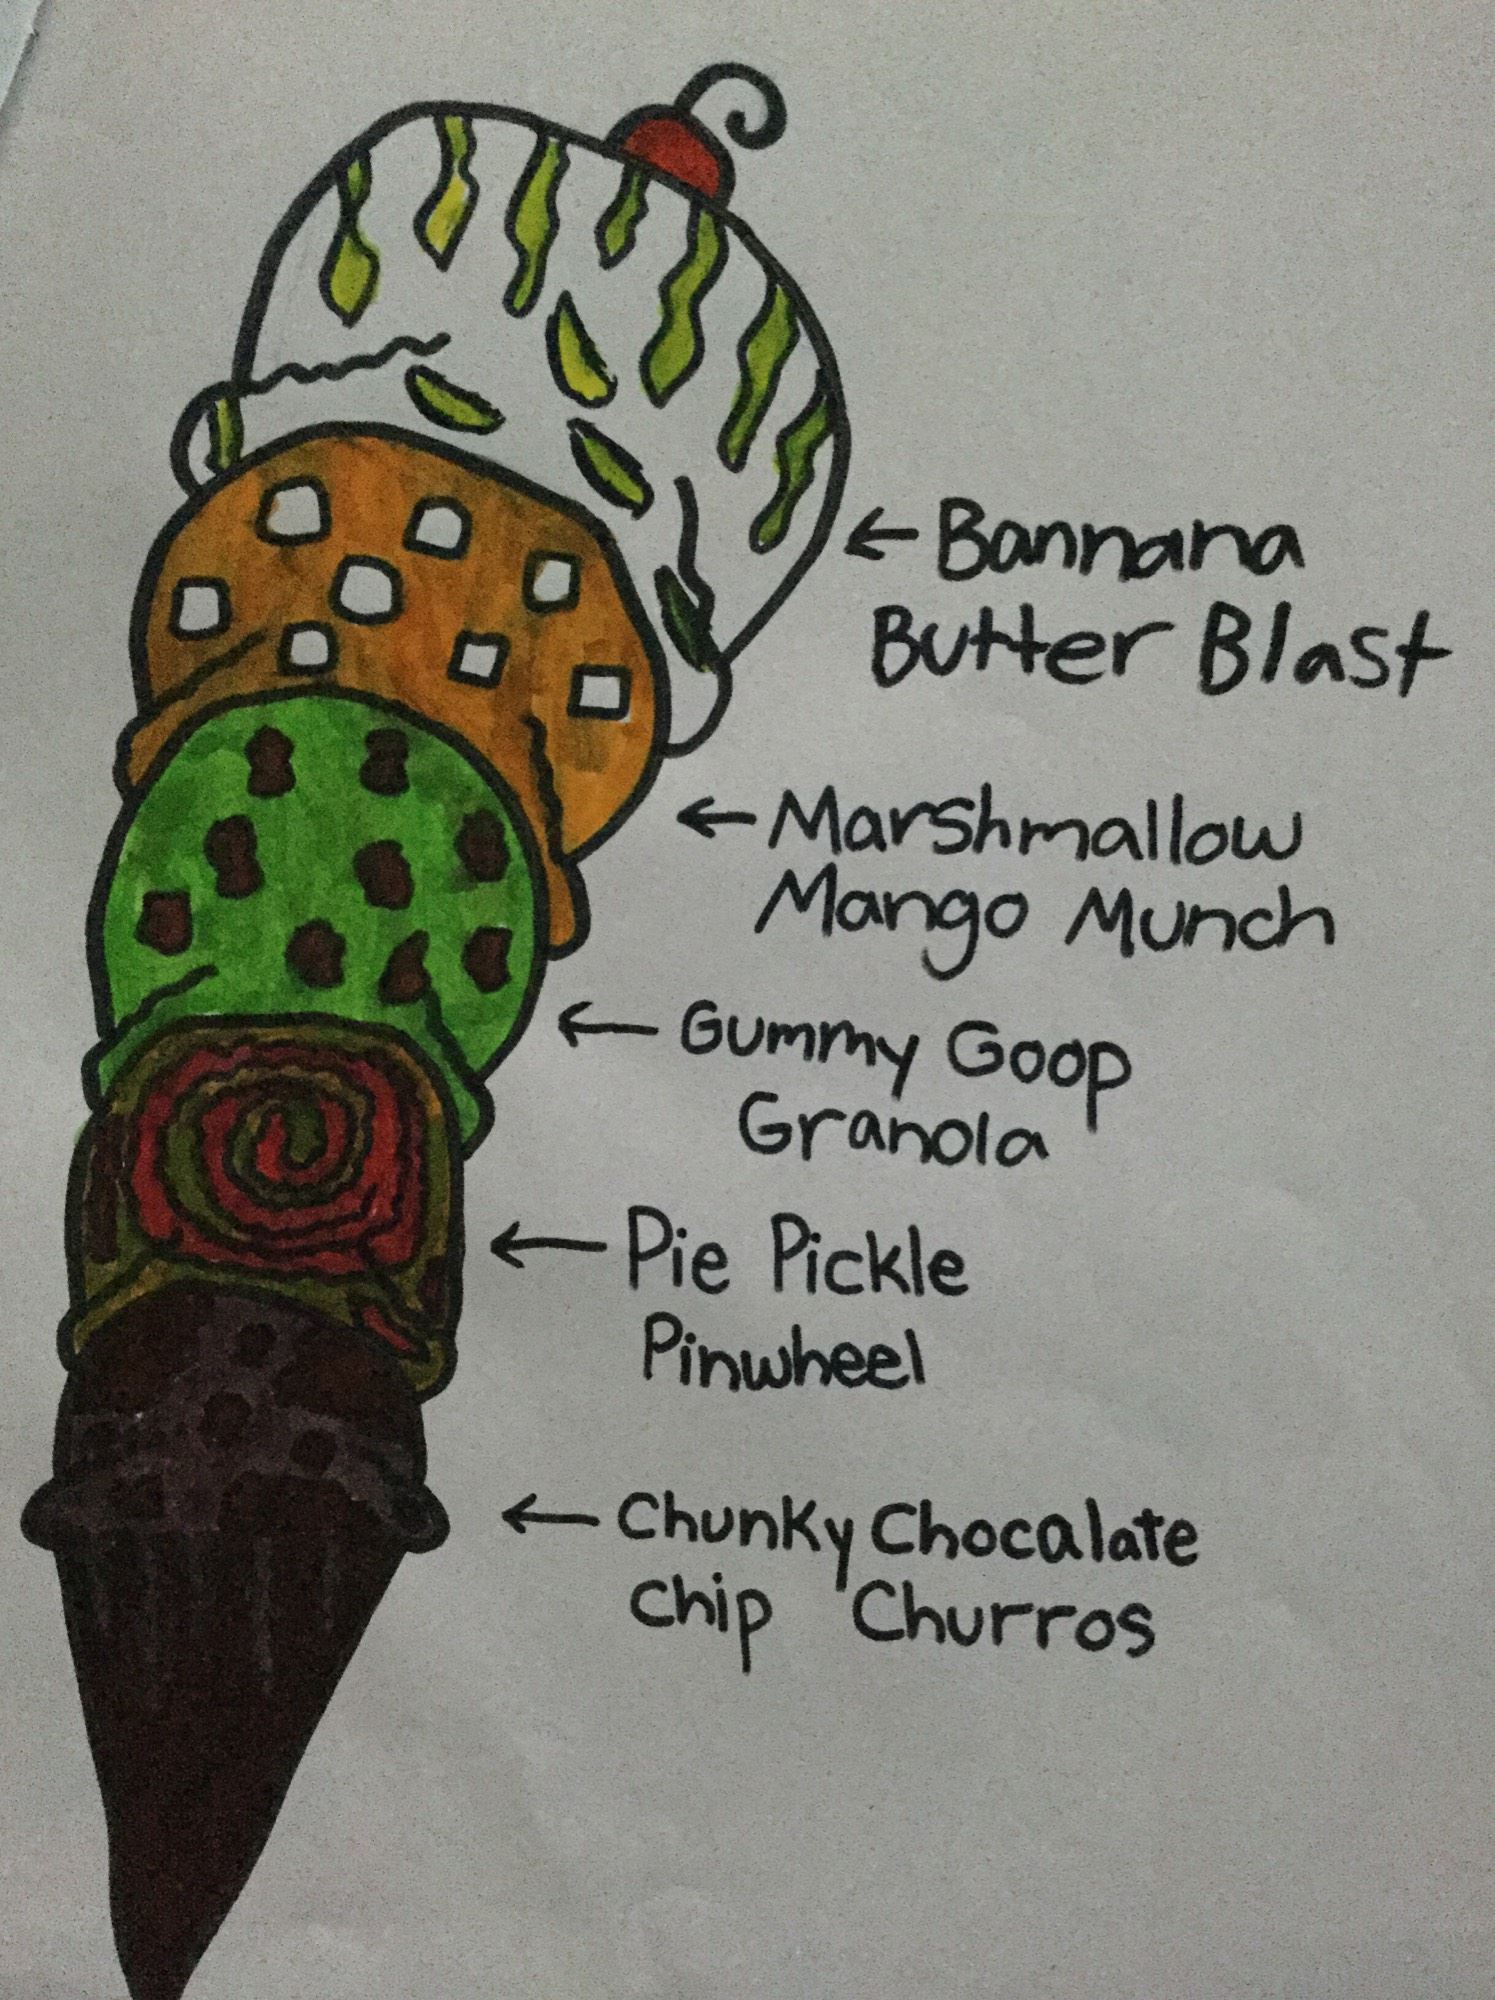 Bannana
Butter Blast
Marshmallow
Mango Munch
Gummy Goop
Granola
Pie Pickle
Pinwheel
Chunky Chocalate
Chip Churros